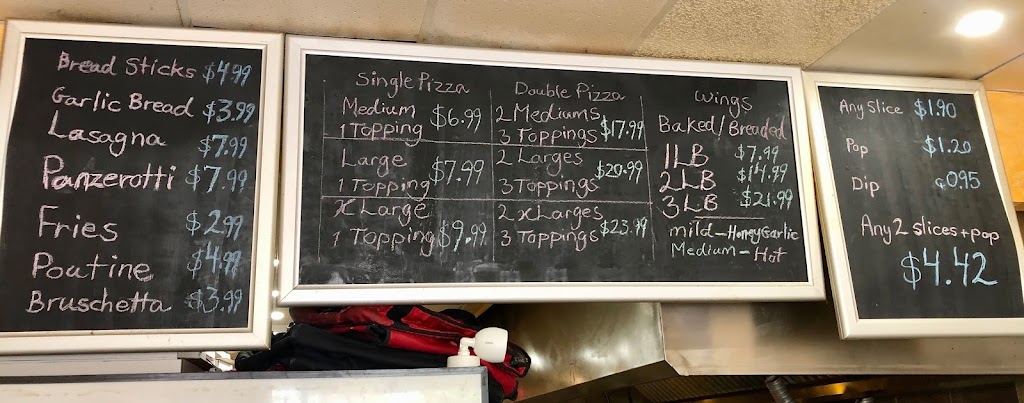 Bread Sticks $4.99
Garlic Bread $3.99
Lasagna $7.99
Panzerotti $7.99
Fries $2.99
Poutine $4.99
Bruschetta $3.99
Single Pizza
Medium
1 Topping $6.99
Large
1 Topping $7.99
X Large
1 Topping $9.99
Double Pizza
2 Mediums
3 Toppings $17.99
2 Larges
3 Toppings $20.99
2 xLarges
3 Toppings $23.99
Wings
Baked/Breaded
1LB $7.99
2LB $14.99
3LB $21.99
mild-Honey Garlic
Medium-Hot
Any Slice $1.90
Pop $1.20
Dip 0.95
Any 2 slices + pop
$4.42